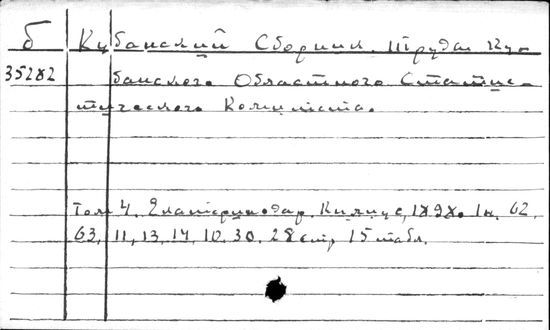 б Кубанский Сборник. Труды Ку-
35282 банского Областного Статис-
тического Комитета.
Том 4. Екатеринодар. 1898. 1н, 62,
63, 11, 13, 14, 10, 30, 28 стр, 15 табл.